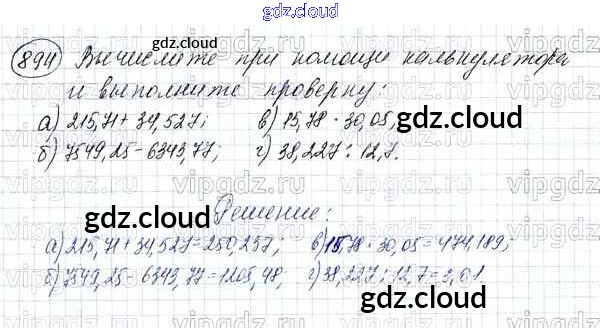 gdz.cloud
894 Вычислите при помощи калькулятора
и выполните проверку:
а) 215,71 + 34,527; в) 15,78 · 30,05;
б) 7549,25 - 6343,77; г) 38,227 : 12,7.
Решение:
а) 215,71 + 34,527 = 250,237; в) 15,78 · 30,05 = 474,189;
б) 7549,25 - 6343,77 = 1205,48; г) 38,227 : 12,7 = 3,01
gdz.cloud
gdz.cloud
gdz.cloud
gdz.cloud
gdz.cloud
gdz.cloud
vipgdz.ru
vipgdz.ru
vipgdz.ru